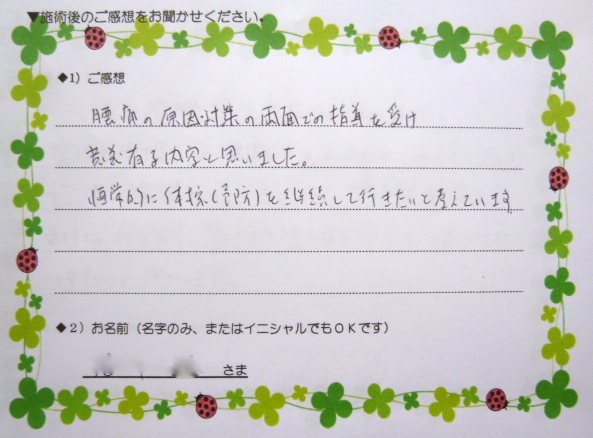 ▼施術後のご感想をお聞かせください。
◆1）ご感想
腰痛の原因・対策の両面での指導を受け
意義有る内容と思いました。
恒常的に体操(予防)を継続して行きたいと考えています。
◆2）お名前（名字のみ、またはイニシャルでもＯＫです）
さま